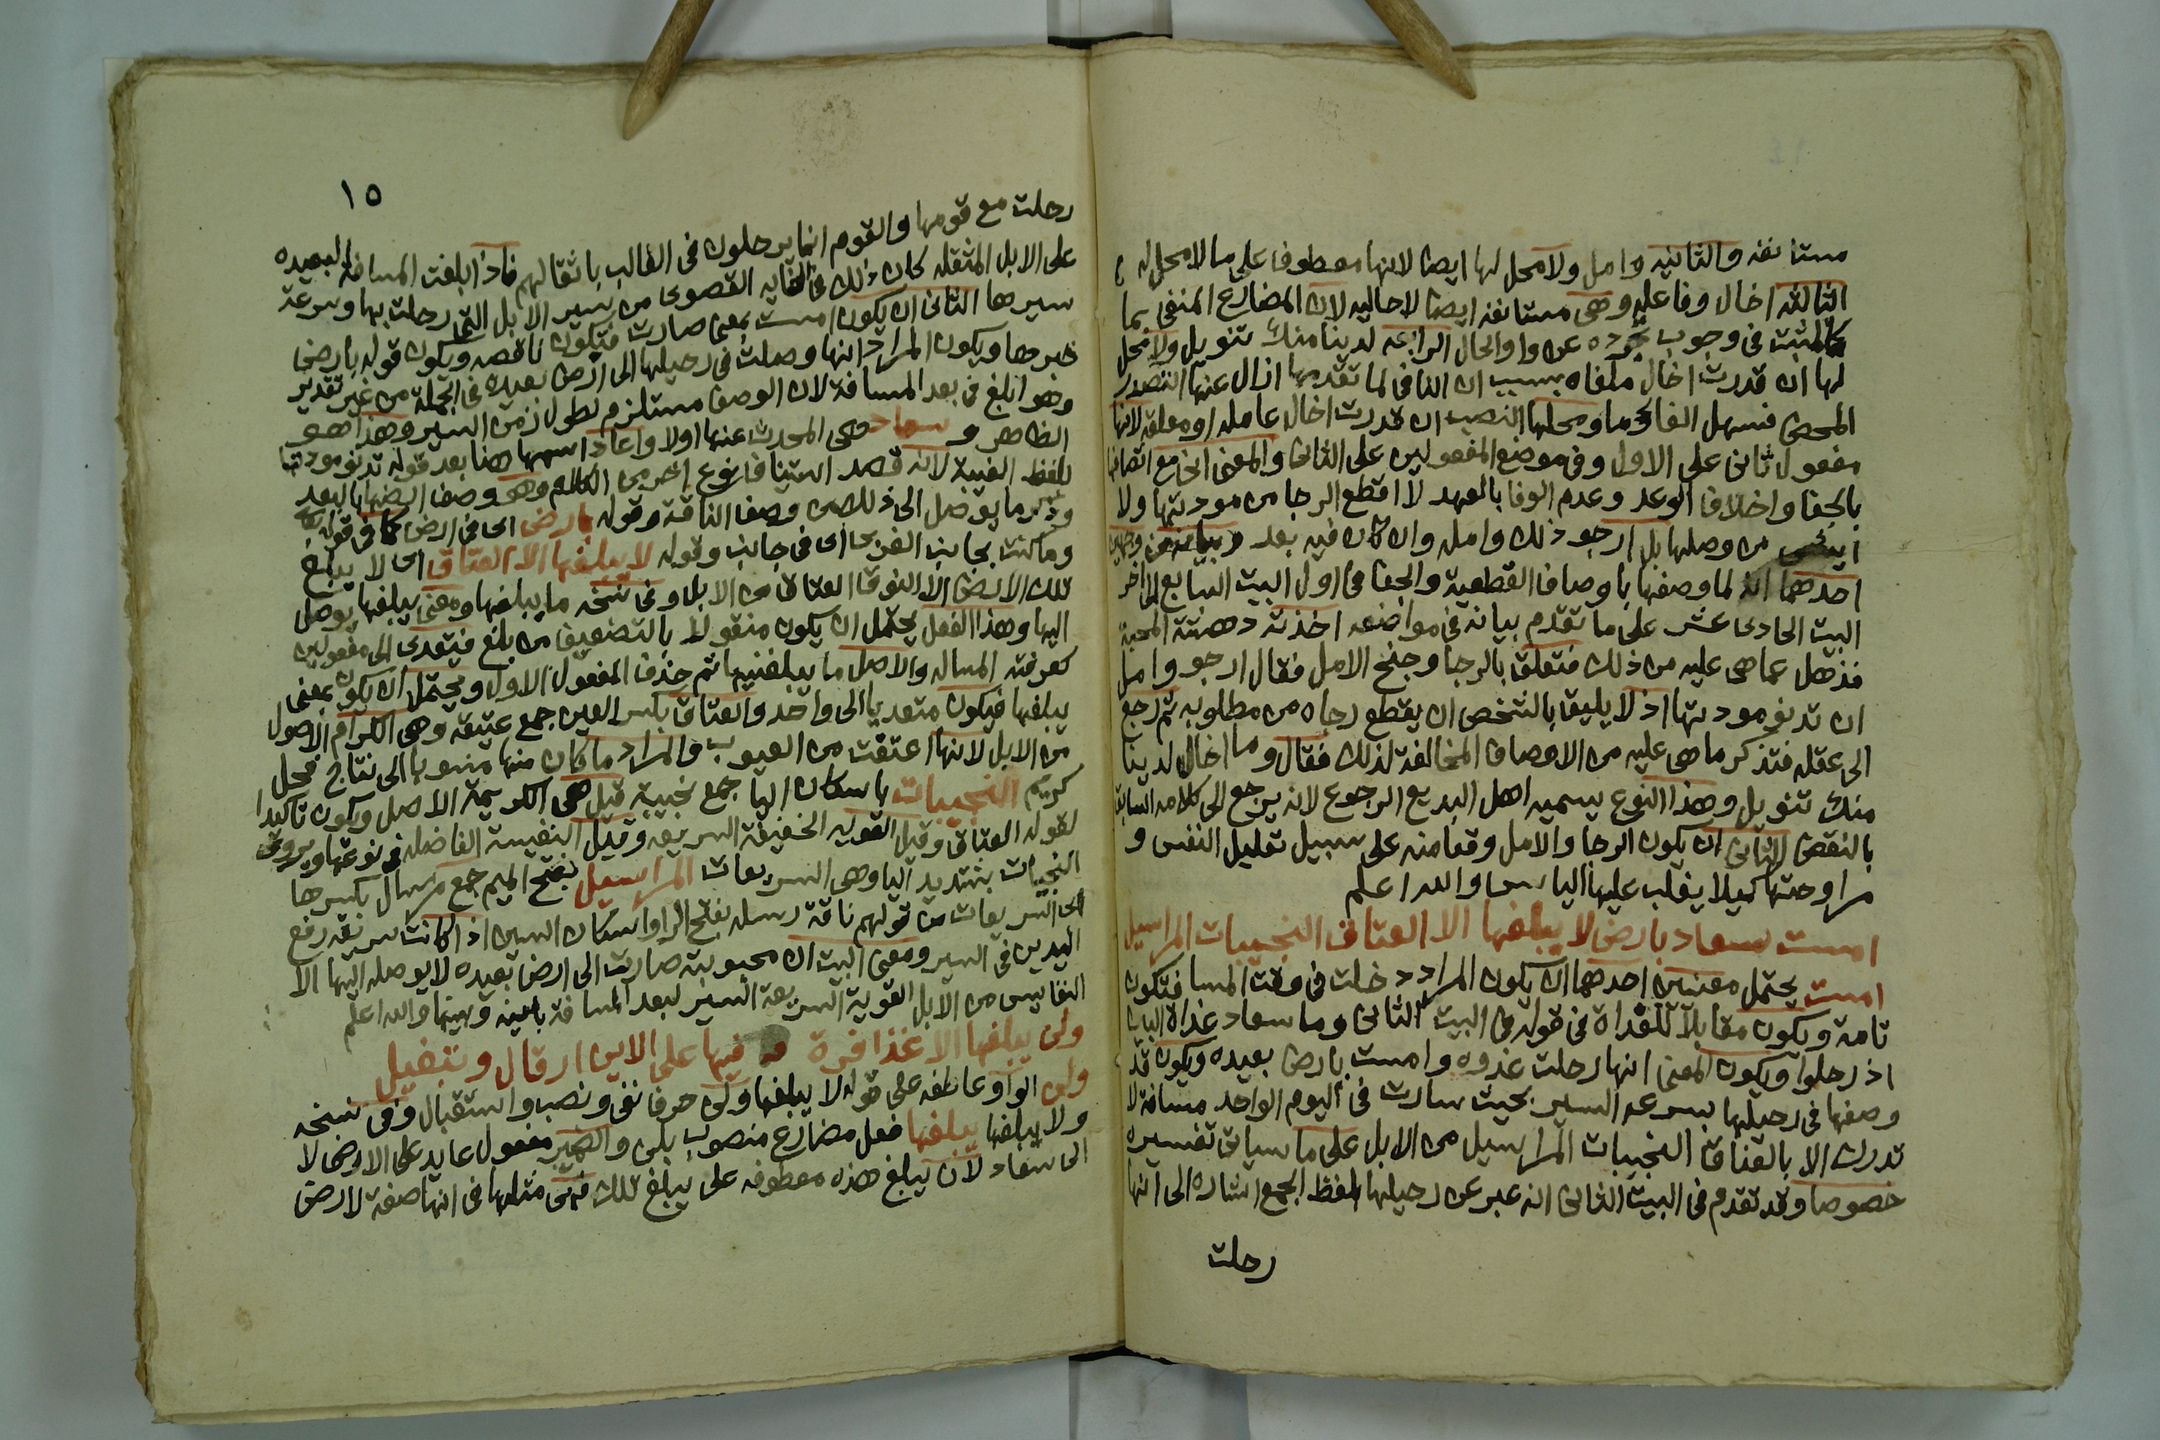 مستانفه والثانيه وامل ولامحل لها ايضا لانها معطوف على مالا محل له
الثالثه اخال وفاعله وهى مستانفه ايضا لاحاليه لان المضارع المنفى بما
كالمثبت فى وجوب تجرده عن واوالحال الرابعه لدينا منك تنويل ولامحل
لها ان قدرت اخال ملغاه بسبب ان النافى لما تقدمها ازال عنها التصدر
المحض فسهل الغاوها ومحلها النصب ان قدرت اخال عامله اومعلقه لانها
مفعول ثانى على الاول وفى موضع المفعولين على الثانى والمعنى انى مع اتصافها
بالجفا واخلاف الوعد وعدم الوفا بالعهد لا اقطع الرجا من مودتها ولا
من وصلها بل ارجو ذلك وامله وان كان فيه بعد
احدهما انه لما وصفها باوصاف القطعية والجفا فى اول البيت السابع الى اخر
البيت الحادى عشر على ما تقدم بيانه فى مواضعه اخذته دهشة المحبة
فذهل عما هى عليه من ذلك فتعلق بالرجا وجنح الامل فقال ارجو وامل
ان تدنو مودتها اذ لا يليق بالشخص ان يقطع رجاه من مطلوبه ثم رجع
الى عقله فتذكر ما هى عليه من الاوصاف المخالفة لذلك فقال وما اخال لدينا
منك تنويل وهذا النوع يسميه اهل البديع الرجوع لانه يرجع الى كلامه السابق
بالنقض الثانى ان يكون الرجا والامل وقعا منه على سبيل تعليل النفس و
مراوحتها كيلا يغلب عليها الياس والله اعلم
امست سعاد بارض لا يبلغها الا العتاق النجيبات المراسيل
امست يحتمل معنيين احدهما ان يكون المراد دخلت فى وقت المسا فتكون
تامه ويكون مقابلا للغداة فى قوله فى البيت الثانى وما سعاد غداة البين
اذ رحلوا ويكون المعنى انها رحلت غدوه وامست بارض بعيده ويكون قد
وصفها فى رحيلها بسرعه السير بحيث سارت فى اليوم الواحد مسافة لا
تدرك الا بالعتاق النجيبات المراسيل من الابل على ما سياتى تفسيره
خصوصا وقد تقدم فى البيت الثانى انه عبر عن رحيلها بلفظ الجمع اشاره الى انها
رحلت
١٥
رحلت مع قومها والقوم انما يرحلون فى الغالب باثقالهم فاذا بلغت المسافة البعيده
على الابل المثقله كان ذلك فى الغايه القصوى من سير الابل التى رحلت بها وسرعة
سيرها الثانى ان يكون امست بمعنى صارت فتكون ناقصه ويكون قوله بارض
خبرها ويكون المراد انها وصلت فى رحيلها الى ارض بعيده فى الجملة من غير تقدير
وهو ابلغ فى بعد المسافة لان الوصف مستلزم لطول زمن السير وهذا هو
الظاهر و سعاد هى المحدث عنها اولا واعاد اسمها هنا بعد قوله تدنو مودتها
بلفظ الغيبة لانه قصد استيناف نوع اخر من الكلام وهو وصف ارضها بالبعد
وذكر ما يوصل الى ذلك من وصف الناقة وقوله بارض اى فى ارض كما فى قوله تعالى
وما كنت بجانب الغربى اى فى جانب وقوله لا يبلغها الا العتاق اى لا يبلغ
تلك الارض الا النوق العتاق من الابل وفى نسخه ما يبلغها ومعنى يبلغها يوصل
اليها وهذا الفعل يحتمل ان يكون منقولا بالتضعيف من بلغ فيتعدى الى مفعولين
كعرفته المساله والاصل ما يبلغنيها ثم حذف المفعول الاول ويحتمل ان يكون بمعنى
يبلغها فيكون متعديا الى واحد والعتاق بكسر العين جمع عتيقه وهى الكرام الاصول
من الابل لانها اعتقت من العيوب والمراد ما كان منها منسوبا الى نتاج فحل
كريم النجيبات باسكان اليا جمع نجيبة قيل هى الكريمة الاصل ويكون تاكيدا
لقوله العتاق وقيل القويه الخفيفة السريعه وقيل النفيسة الفاضله فى نوعها ويروى
النجيات بتشديد اليا وهى السريعات المراسيل بفتح الميم جمع مرسال بكسرها
اى السريعات من قولهم ناقة رسله بفتح الرا واسكان السين اذا كانت سريعة رفع
اليدين فى السير ومعنى البيت ان محبوبته صارت الى ارض بعيده لا يوصله اليها الا
النفايس من الابل القوية السريعة السير لبعد المسافة بينه وبينها والله اعلم
ولن يبلغها الا غذافرة فيها على الاين ارقال وتبغيل
ولن الواو عاطفه على قوله لا يبلغها ولن حرف نفى ونصب واستقبال وفى نسخه
ولا يبلغها يبلغها فعل مضارع منصوب بلن والضمير مفعول عايد على الارض لا
الى سعاد لان يبلغ هذه معطوفه على يبلغ تلك فهى مثلها فى انها صفة لارض